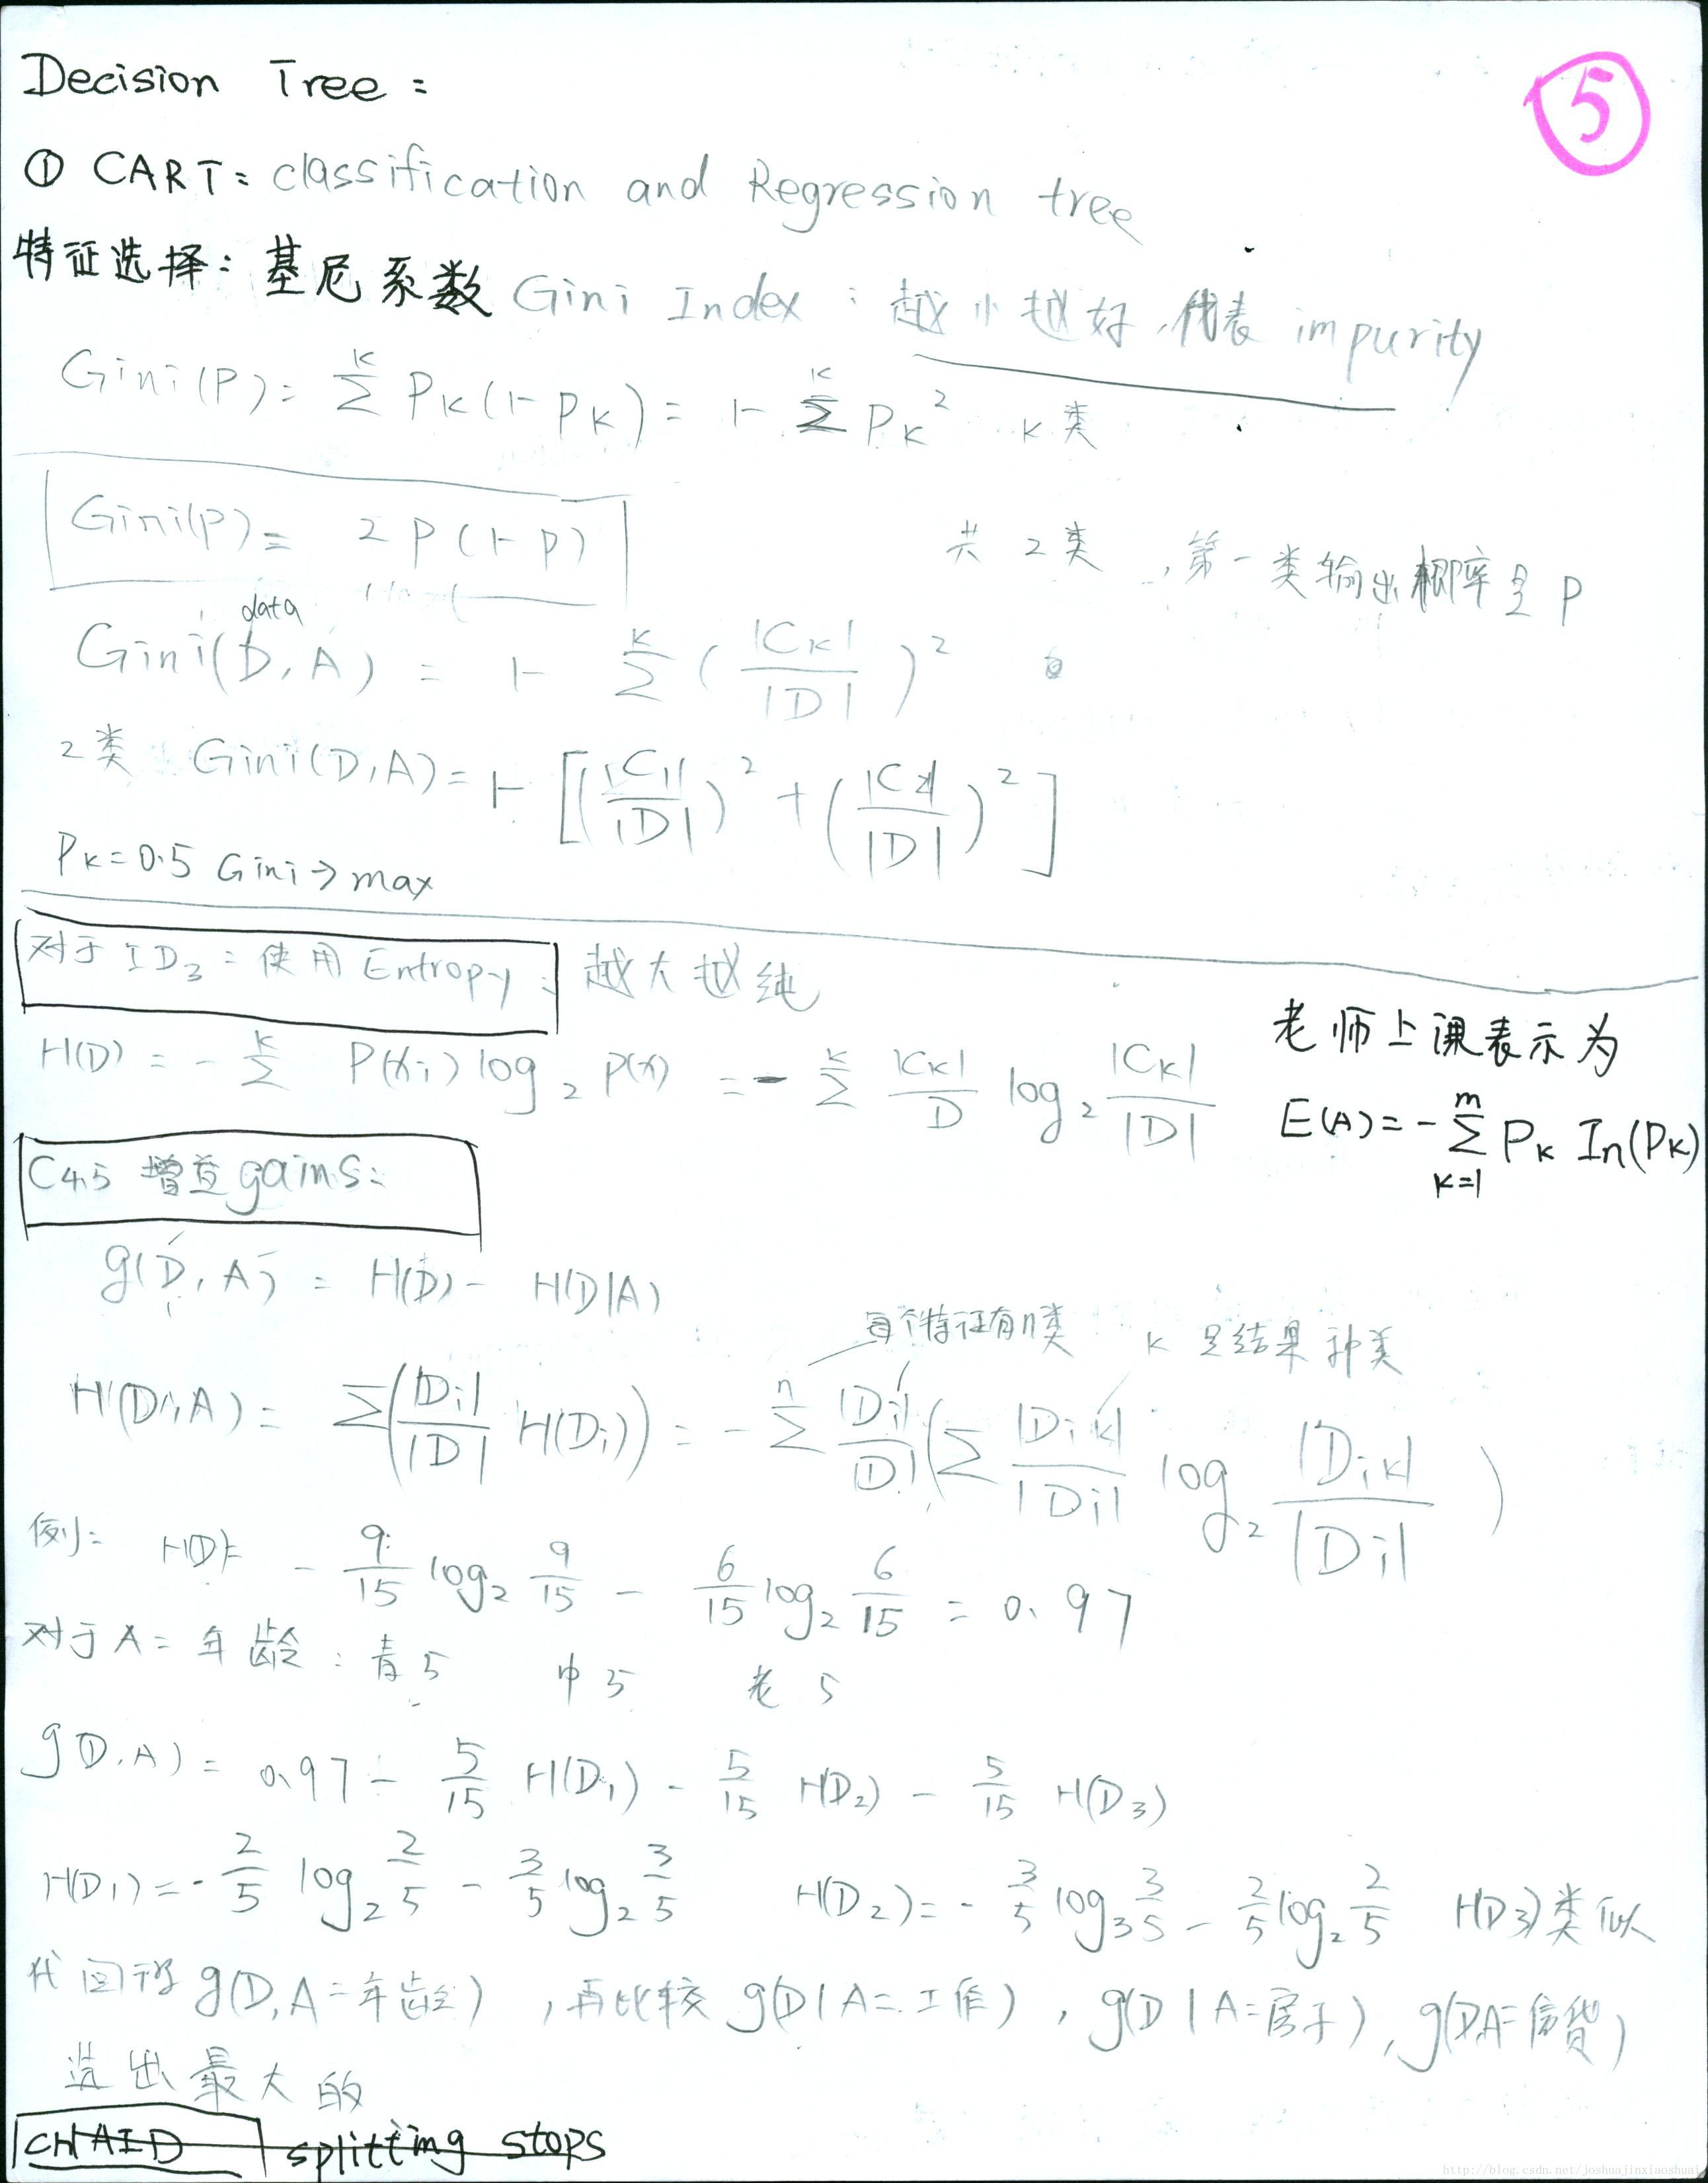 Decision Tree:
5
① CART: classification and Regression tree
特征选择: 基尼系数 Gini Index: 越小越好, 代表 impurity
Gini(P)= ∑^K P_K(1-P_K)= 1- ∑^K P_K^2 K类
Gini(P)= 2P(1-P) 共2类, 第一类输出概率是P
data
Gini(D,A) = 1- ∑^K (|C_K|/|D|)^2
2类 Gini(D,A)= 1- [(|C_1|/|D|)^2+(|C_2|/|D|)^2]
P_K=0.5 Gini→max
对于ID3: 使用Entropy: 越大越纯
H(D) = - ∑^K P(x_i) log_2 P(x) = - ∑^K |C_K|/D log_2 |C_K|/|D|
老师上课表示为
E(A)=-∑_{K=1}^m P_K In(P_K)
C4.5 增益gains:
g(D,A) = H(D)- H(D|A)
每个特征有n类 K是结果种类
H(D,A)= ∑(|D_i|/|D| H(D_i)) = - ∑^n |D_i|/|D| (∑ |D_ik|/|D_i| log_2 |D_ik|/|D_i|)
例: H(D)= - 9/15 log_2 9/15 - 6/15 log_2 6/15 = 0.97
对于A=年龄: 青5 中5 老5
g(D,A)= 0.97 - 5/15 H(D_1) - 5/15 H(D_2) - 5/15 H(D_3)
H(D_1)=- 2/5 log_2 2/5 - 3/5 log_2 3/5 H(D_2)= - 3/5 log_3 3/5 - 2/5 log_2 2/5 H(D_3)类似
代回得g(D,A=年龄), 再比较 g(D|A=工作), g(D|A=房子), g(D,A=信贷)
选出最大的
CHAID splitting stops
http://blog.csdn.net/joshuajinxiaoshuai